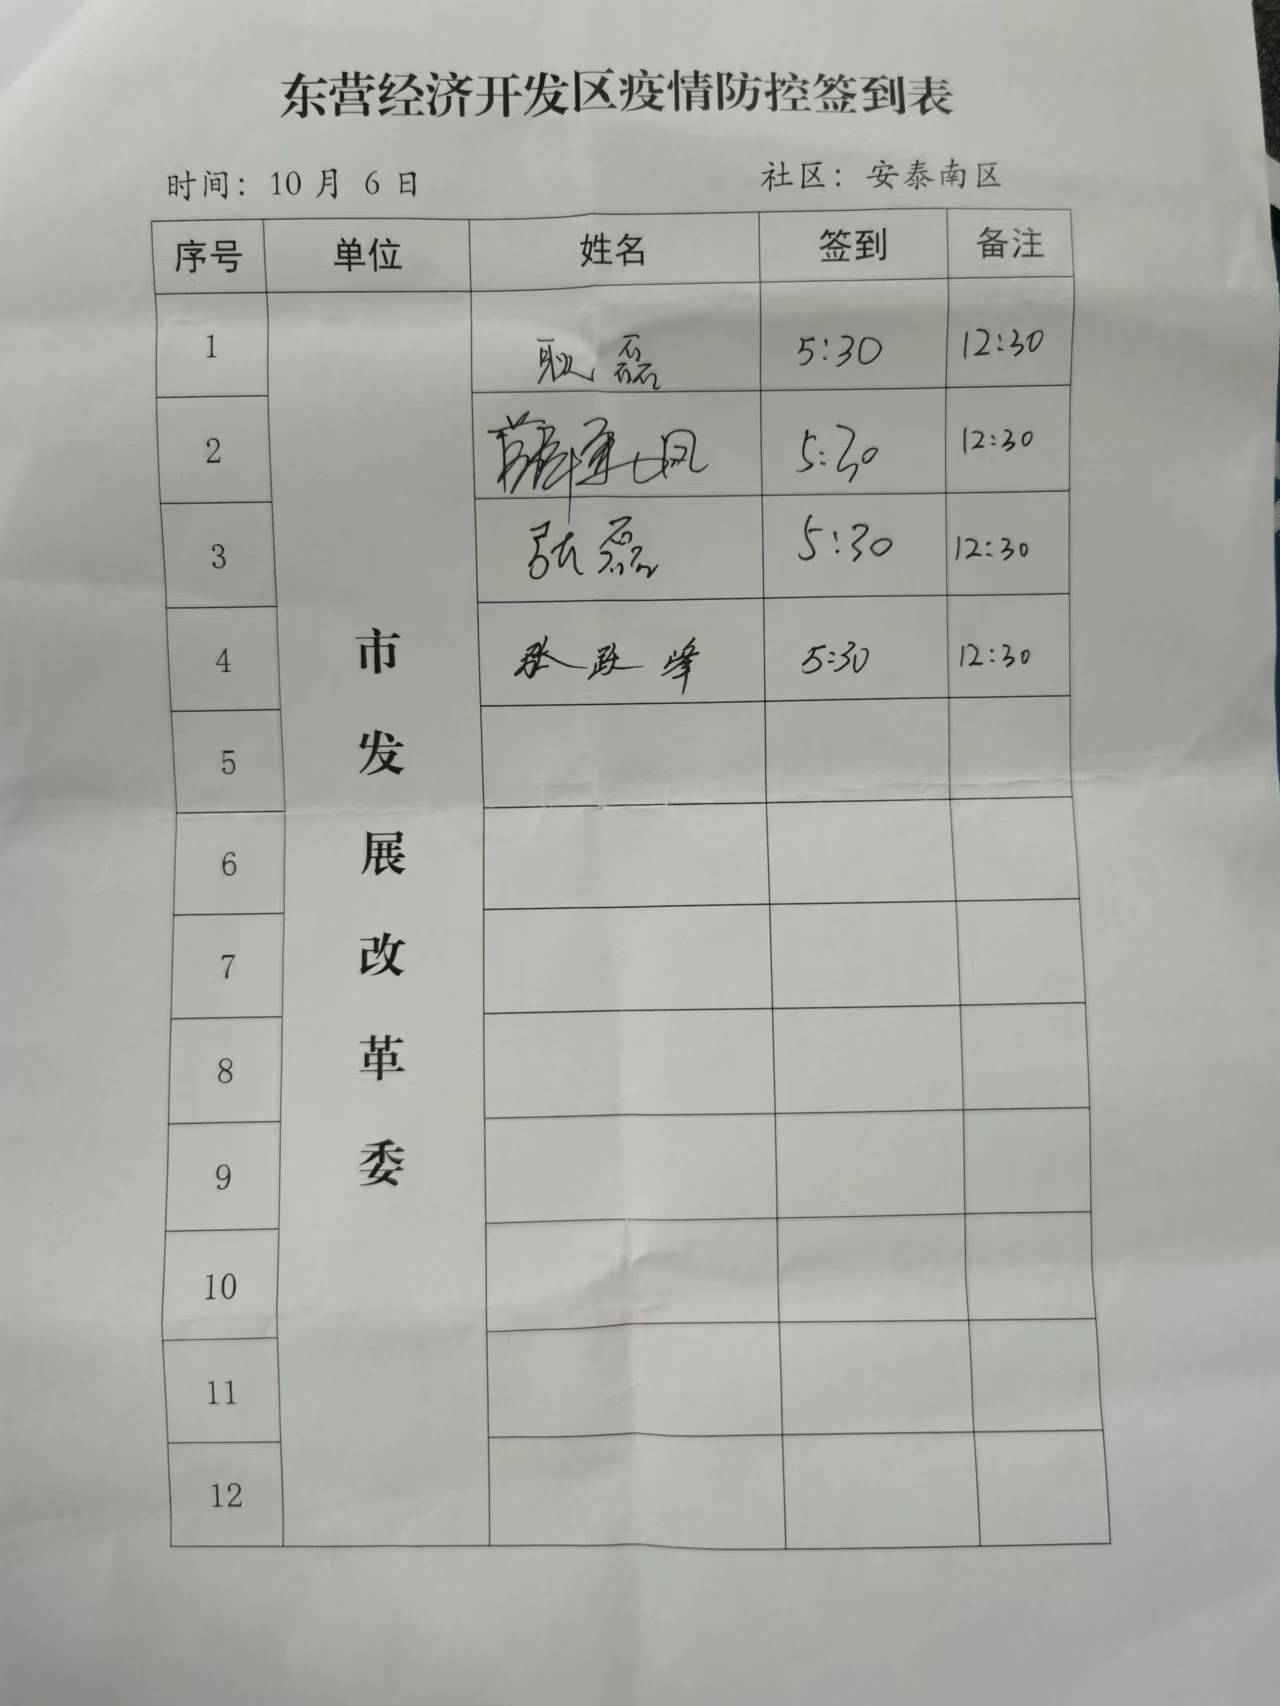 东营经济开发区疫情防控签到表
时间：10月 6日 社区：安泰南区
序号 单位 姓名 签到 备注
1 耿磊 5:30 12:30
2 薛军凤 5:30 12:30
3 张磊 5:30 12:30
4 张跃峰 5:30 12:30
市发展改革委
5
6
7
8
9
10
11
12